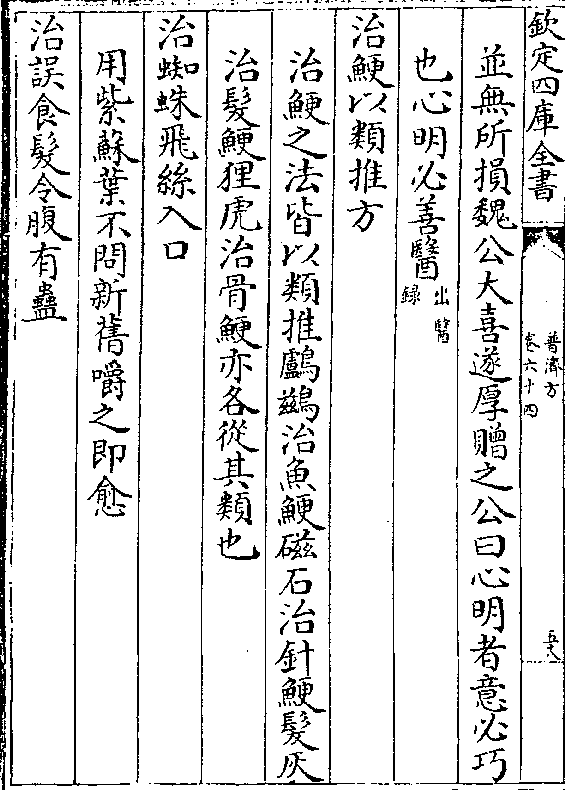 欽定四庫全書
普濟方
卷六十四
五八
並無所損魏公大喜遂厚贈之公曰心明者意必巧
也心明必善醫出醫録
治鯁以類推方
治鯁之法皆以類推鸕鷀治魚鯁磁石治針鯁髮灰
治髮鯁狸虎治骨鯁亦各從其類也
治蜘蛛飛絲入口
用紫蘇葉不問新舊嚼之即愈
治誤食髮令腹有蠱